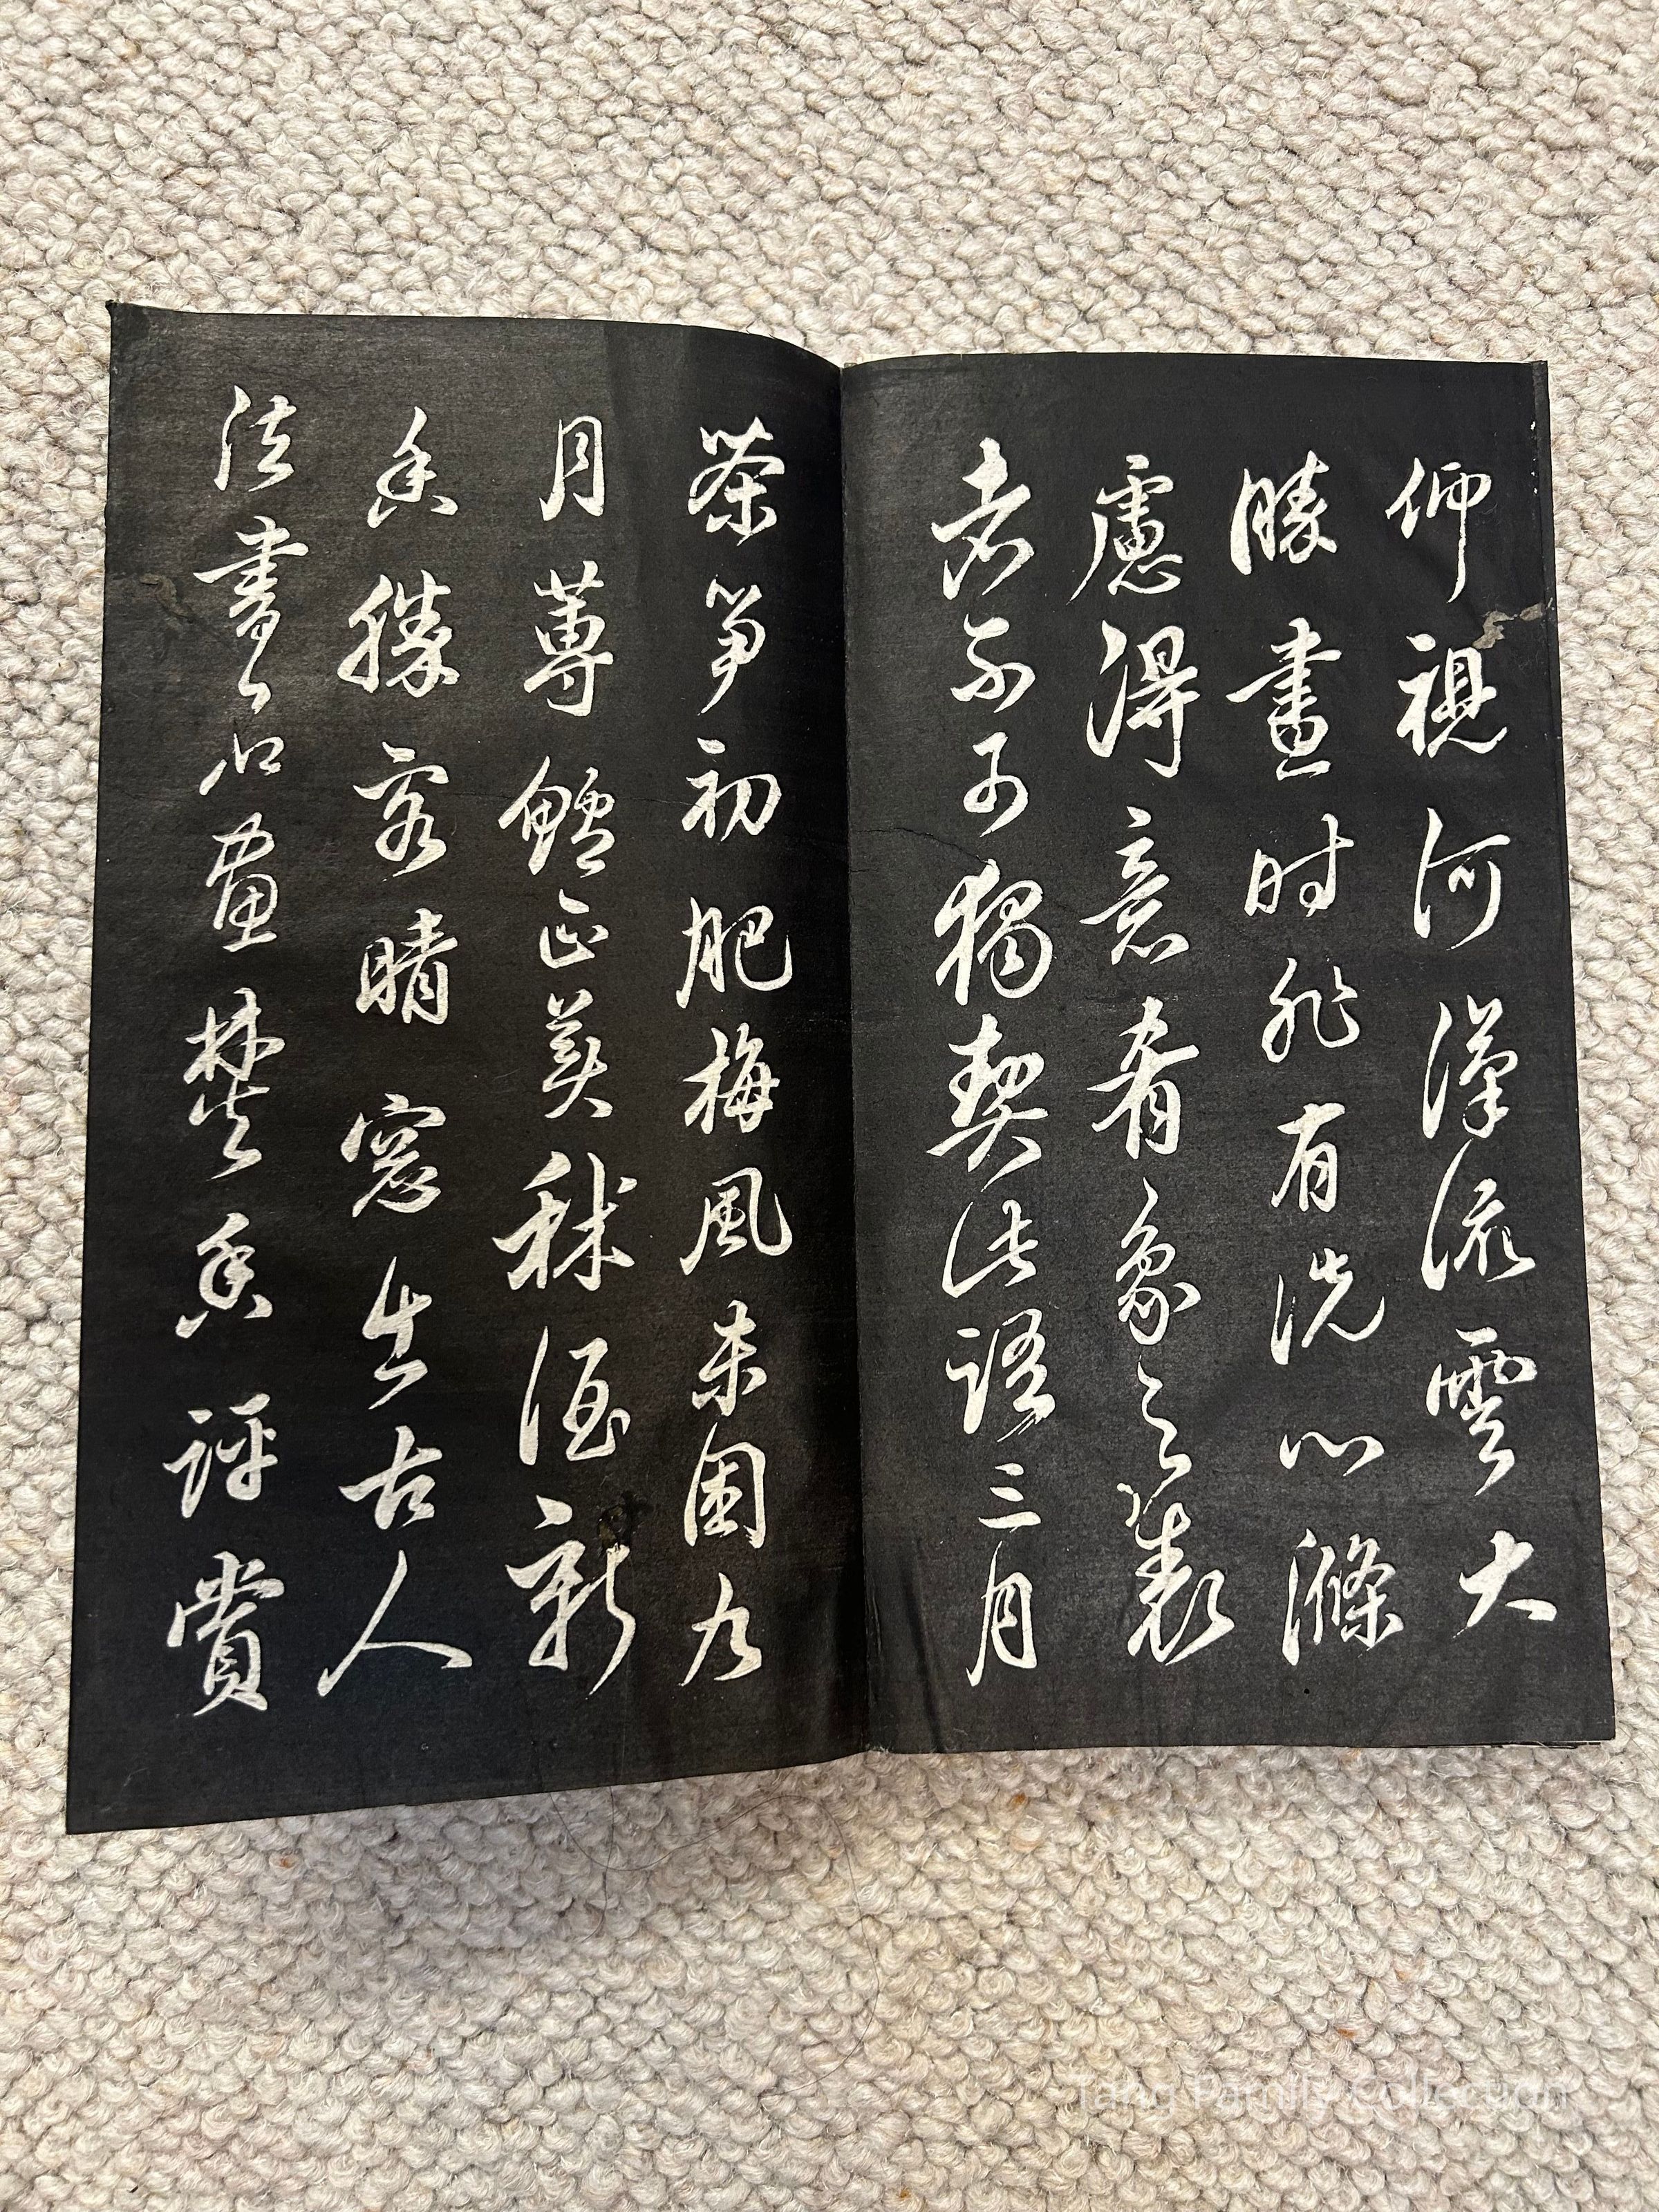 仰視河漢流雲大
勝畫时能有洗心滌
慮得意者象之表
者不可獨契此語三月
茶笋初肥梅風未困九
月蓴鱸正美秫酒新
香勝客晴窓出古人
法書名畫焚香評賞
Tang Family Collection